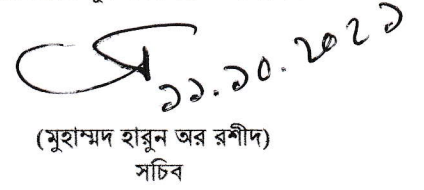 ১১.১০.২০২১
(মুহাম্মদ হারুন অর রশীদ)
সচিব